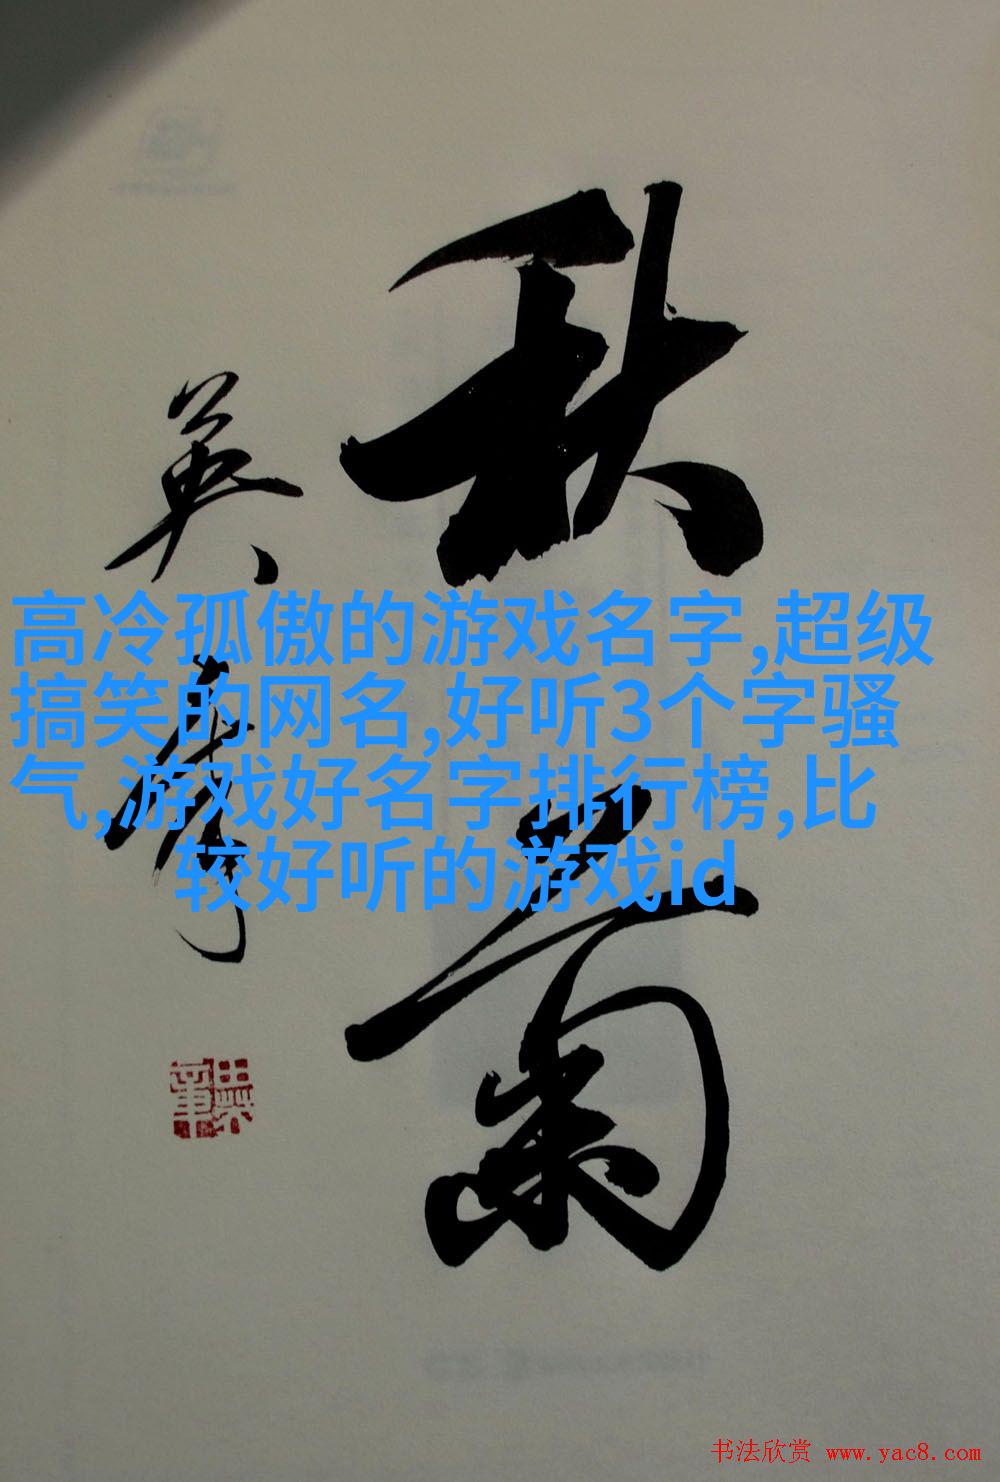 秋菊
英杰
高冷孤傲的游戏名字,超级
搞笑的网名,好听3个字骚
气,游戏好名字排行榜,比
较好听的游戏id
书法欣赏 www.yac8.com